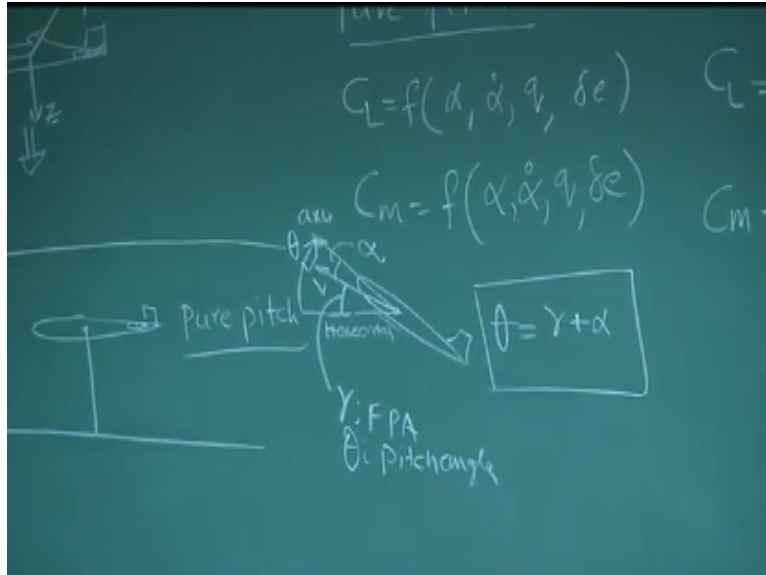 pure pitch
Z
C_L = f(α, α̇, q, δe)
C_L =
C_m = f(α, α̇, q, δe)
C_m =
axis
θ
α
V
pure pitch
Horizontal
θ = γ + α
γ: FPA
θ: Pitch angle